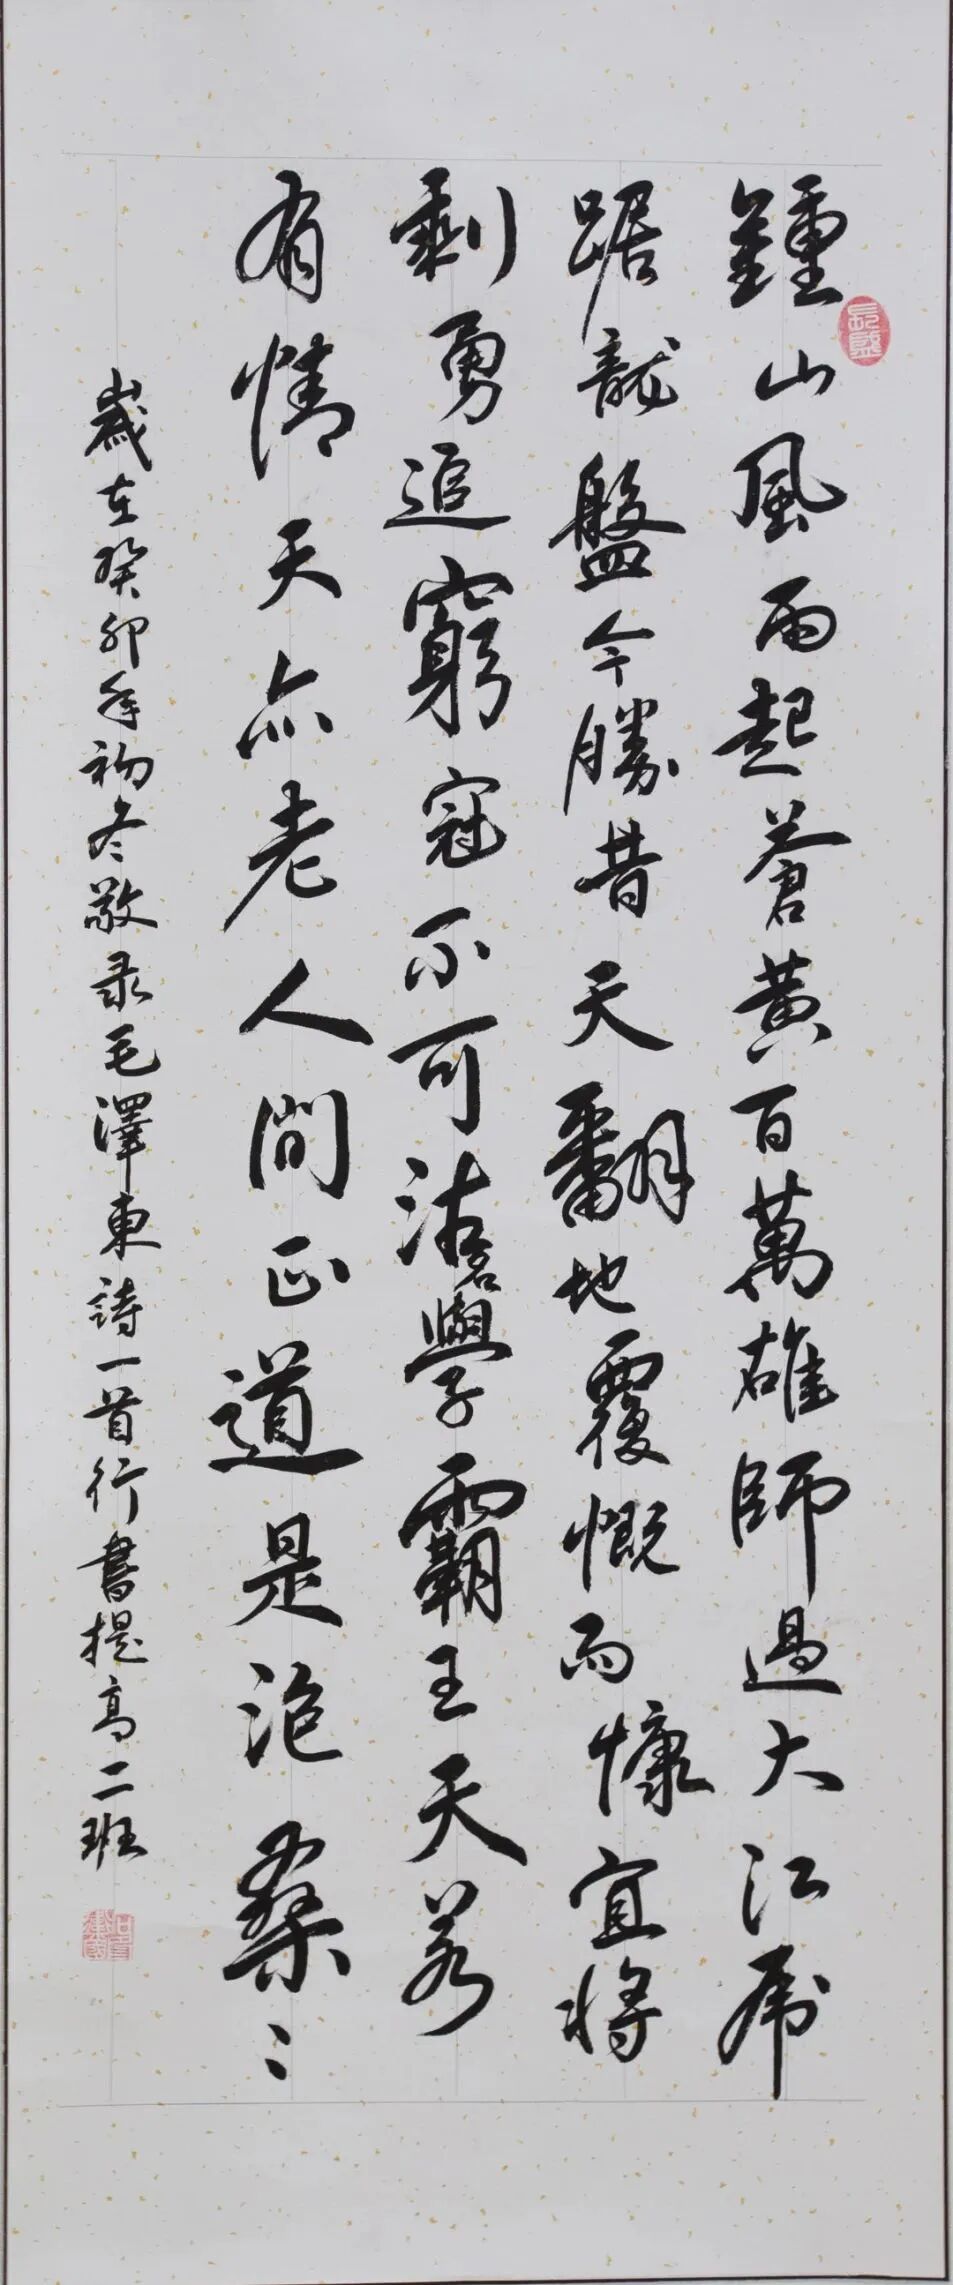 鍾山風雨起蒼黃百萬雄師過大江虎
踞龍盤今勝昔天翻地覆慨而慷宜將
剩勇追窮寇不可沽名學霸王天若
有情天亦老人間正道是滄桑〻
歲在癸卯年初冬敬录毛澤東詩一首行書提高二班